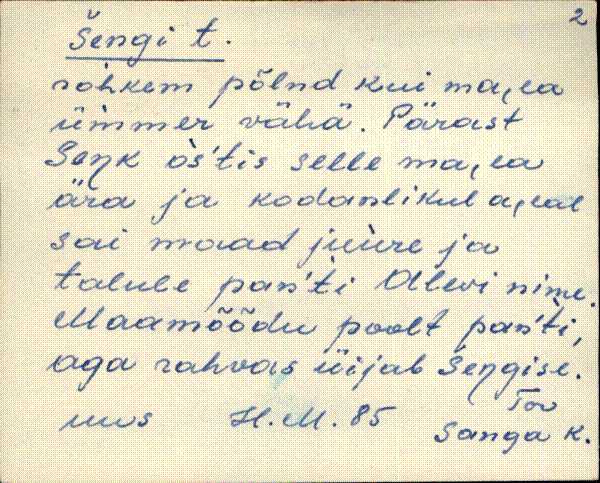 2
Šengi t.
rohkem põlnd kui ma̭ea
ümmer vähä. Pärast
Seŋk òs'tis selle ma̭ea
ära ja kodanlikul a̭eal
sai maad jùure ja
talule pan'ti Alevi nime.
Maamõõdu poolt pan'ti,
aga rahvas üijab Šeŋgise.
Tor
H.M. 85
Sanga k.